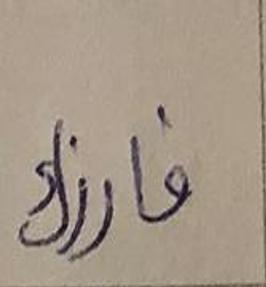 فارزاد